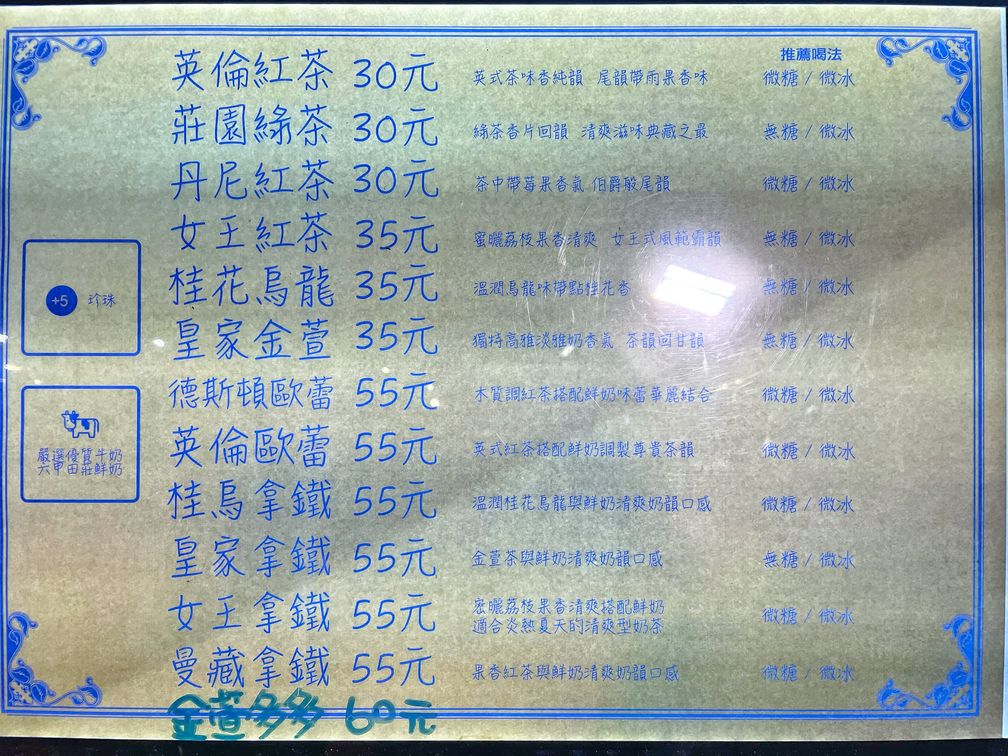 推薦喝法
英倫紅茶 30元 英式茶味香純韻 尾韻帶雨果香味 微糖 / 微冰
莊園綠茶 30元 綠茶香片回韻 清爽滋味典藏之最 無糖 / 微冰
丹尼紅茶 30元 茶中帶莓果香氣 伯爵般尾韻 微糖 / 微冰
女王紅茶 35元 蜜曬荔枝果香清爽 女王式風範霸韻 無糖 / 微冰
桂花烏龍 35元 溫潤烏龍味帶點桂花香 無糖 / 微冰
+5 珍珠
皇家金萱 35元 獨特高雅淡雅奶香氣 茶韻回甘韻 無糖 / 微冰
德斯頓歐蕾 55元 木質調紅茶搭配鮮奶味蕾華麗結合 微糖 / 微冰
英倫歐蕾 55元 英式紅茶搭配鮮奶調製尊貴茶韻 微糖 / 微冰
嚴選優質牛奶
六甲田莊鮮奶
桂烏拿鐵 55元 溫潤桂花烏龍與鮮奶清爽奶韻口感 微糖 / 微冰
皇家拿鐵 55元 金萱茶與鮮奶清爽奶韻口感 無糖 / 微冰
女王拿鐵 55元 蜜曬荔枝果香清爽搭配鮮奶 微糖 / 微冰
適合炎熱夏天的清爽型奶茶
曼藏拿鐵 55元 果香紅茶與鮮奶清爽奶韻口感 微糖 / 微冰
金萱多多 60元